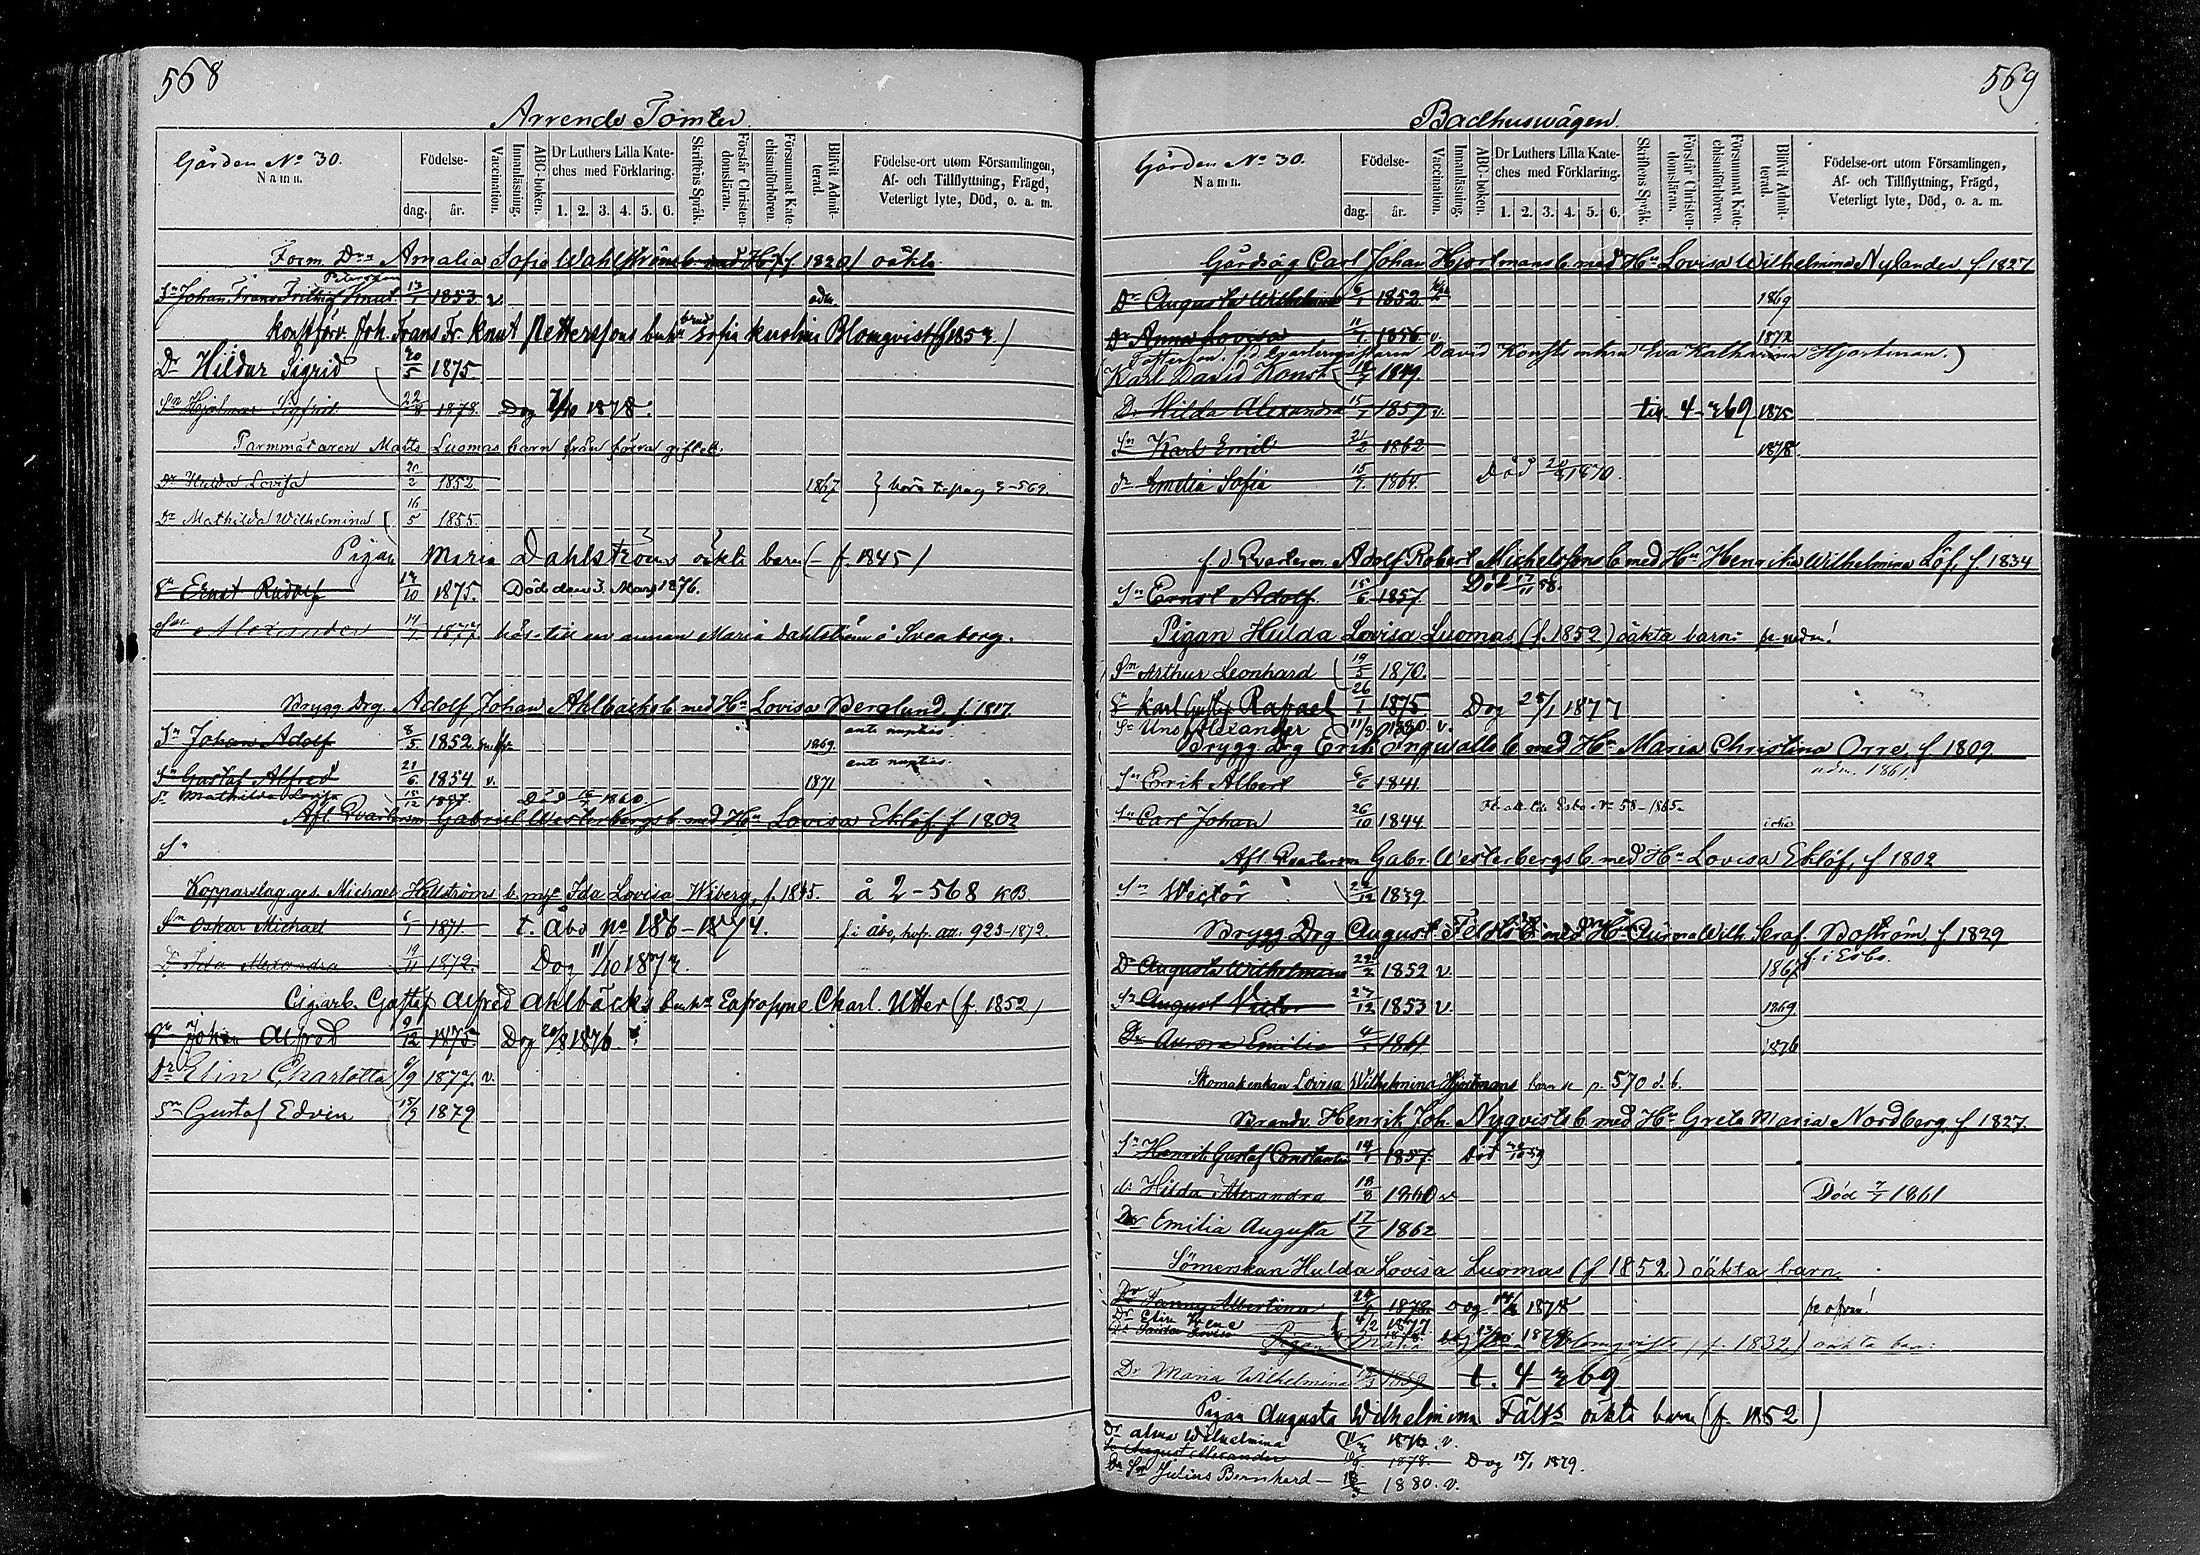 568
Arrende Tomter.
Gården No 30.
Namn.
Födelse-
dag. år.
Vaccination.
Innanläsning.
ABC-boken.
Dr Luthers Lilla Kate-
ches med Förklaring.
1. 2. 3. 4. 5. 6.
Skriftens Språk.
Förstår Christen-
domsläran.
Försummat Kate-
chismiförhören.
Blifvit Admit-
terad.
Födelse-ort utom Församlingen,
Af- och Tillflyttning, Frägd,
Veterligt lyte, Död, o. a. m.
Amalia Sofia Wahlströms b. f 1820) oäkta
Petersson
Sn Johan Frans Frithiof Knut 13/1 1853 v adm.
Joh. Frans Fr. Knut Petterssons Sofia Karolina Blomqvist (f. 1853)
Dr Hildur Sigrid 20/5 1875.
Sn Hjalmar Sigfrid 22/8 1878. Dog 7/10 1878.
Matts Luomas barn från förra giftet.
Dr Hulda Lovisa 20/2 1852 1867
Dr Mathilda Wilhelmina 16/5 1855.
Pigan Maria Dahlströms oäkta barn (f. 1845)
Sn Ernst Rudolf 1875. Död den 3. Mars 1876.
Alexander 1877. till en annan Maria Dahlström i Sveaborg.
Brygg. Drg. Adolf Johan Ahlbäcks b. med Hu Lovisa Berglund f. 1817.
Sn Johan Adolf 8/5 1852 1869 ante nuptias.
Sn Gustaf Alfred 21/6 1854 v. 1871 ante nuptias.
Dr Mathilda Lovisa 18/12 1857. Död 1860
Afl. Qvarterm Gabriel Westerbergs b. med Hu Lovisa Eklöf f. 1802
Sn
Kopparslag.ges. Michael Hellströms b. Ida Lovisa Wiberg, f. 1845. å 2-568 KB.
Sn Oskar Michael 1871. t. Åbo No 186-1874. f. i Åbo, 923-1872.
Dr Ida Alexandra 19/11 1872. Dog 11/10 1873.
Cigarb. Gustaf Alfred Ahlbäcks Eufrosyne Charl. Utter (f. 1852)
Sn Johan Alfred 9/12 1875 Dog 20/8 1876
Dr Elin Charlotta 6/9 1877. v.
Sn Gustaf Edvin 15/9 1879
569
Badhuswägen.
Gården No 30.
Namn.
Födelse-
dag. år.
Vaccination.
Innanläsning.
ABC-boken.
Dr Luthers Lilla Kate-
ches med Förklaring.
1. 2. 3. 4. 5. 6.
Skriftens Språk.
Förstår Christen-
domsläran.
Försummat Kate-
chismiförhören.
Blifvit Admit-
terad.
Födelse-ort utom Församlingen,
Af- och Tillflyttning, Frägd,
Veterligt lyte, Död, o. a. m.
Gårdsäg Carl Johan Hjortmans b. med Hu Lovisa Wilhelmina Nylander f 1827
Dr Augusta Wilhelmina 6/1 1852 1869
Dr Anna Lovisa 1856 v. 1872
David Konst Eva Katharina Hjortman.)
Karl David Konst 1849.
Dr Hilda Alexandra 15/1 1859 v. till 4-269 1875
Sn Karl Emil 21/2 1862 1878.
Dr Emelia Sofia 1864. Död 1870.
f. d. Qvarterm. Adolf Robert Michelssons b. med Hu Henrika Wilhelmina Löf, f. 1834
Sn Ernst Adolf. 15/6 1857. Död 17/11 58.
Pigan Hulda Lovisa Luomas (f. 1852) oäkta barn: se nedan!
Sn Arthur Leonhard 19/5 1870.
Sn Karl Gustaf Rafael 26/1 1875 Dog 25/1 1877
Alexander 11/8 1880 v.
Brygg drg Erik Ingvalls b. med Hu Maria Christina Orre f 1809
Sn Errik Albert 6/6 1841 adm. 1861
Sn Carl Johan 26/10 1844 Esbo No 58-1865
Afl. Qvarterm Gabr. Westerbergs b. med Hu Lovisa Eklöf, f 1802
Sn Wictor 1839
Brygg Drg August Fälts b. med Hu Aurora Wilh. Seraf. Boström. f 1829
Dr Augusta Wilhelmina 22/2 1852 v. 1867 f. i Esbo.
Sn August Victor 27/12 1853 v. 1869
Dr Aurora Emilia 1861 1876
Lovisa Wilhelmina Hjortmans barn se p. 570 d. b.
Brandv. Henrik Joh. Nyqvists b. med Hu Greta Maria Nordberg. f 1827.
Sn Henrik Gustaf Constantin 14/1 1857. Död
Dr Hilda Alexandra 18/8 1860 v Död 1861
Dr Emilia Augusta 17/7 1862
Sömerskan Hulda Lovisa Luomas (f 1852) oäkta barn.
Dr Fanny Albertina 1878 Dog 1878 se ofvan!
Dr Elin Irene 4/2 1877
Pigan Maria Blomqvists (f. 1832) oäkta barn:
Dr Maria Wilhelmina 1859 t. 4-269
Pigan Augusta Wilhelmina Fälts oäkta barn (f. 1852)
Dr Alma Wilhelmina 1876. v.
Sn August Alexander 1878. Dog 15/1 1879.
Sn Julius Bernhard 1880. v.